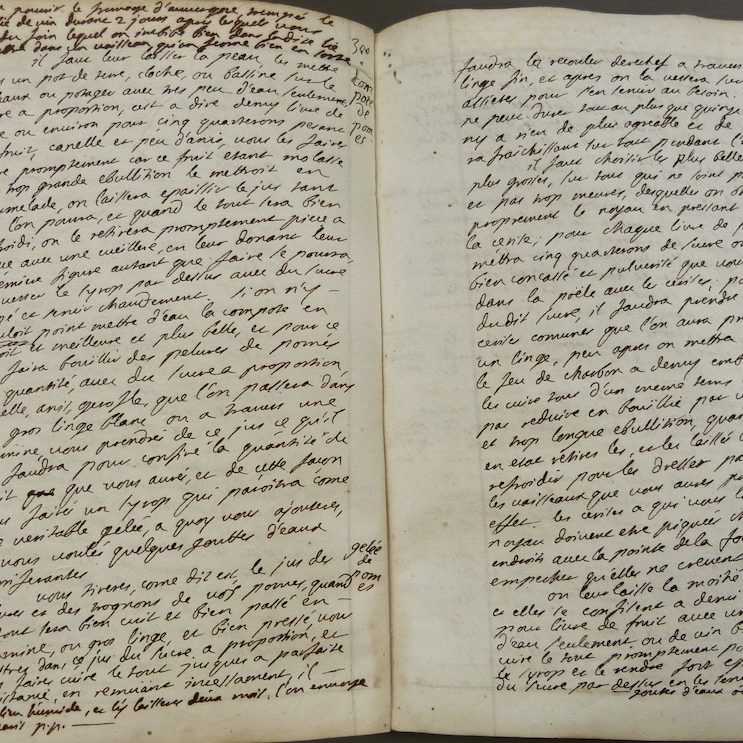 pourrir le fromage d'auvergne trempés le
lie de vin durant 2 jours apres lequel vous
du foin lequel on imbibe bien dans ladite lie
dans un vaisseau qu'on ferme bien en sorte
il faut leur laisser la peau, les mettre
un pot de terre, cloche, ou bassine sur le
ou potager avec tres peu d'eau seulement,
a proportion, cest a dire demy livre de
ou environ pour cinq quarterons pesant
fruit, canelle et peu d'anis, vous les faires
promptement car ce fruit estant molasse
trop grande ebullition le mettroit en
on laissera epaissir le jus tant
l'on poura, et quand le tout sera bien
on le retirera promptement piece a
avec une cueillere, en leur donant leur
figure autant que faire se poura,
le syrop par dessus avec du sucre
et servir chaudement. si on n'y
point mettre d'eau la compote en
et meilleure et plus belle, et pour ce
faira bouillir des pelures de pomes
quantité, avec du sucre a proportion,
anis, gerofle, que l'on passera dans
gros linge blanc ou a travers une
vous prendrés de ce jus ce qu'il
faudra pour confire la quantité de
que vous aurés, et de cette façon
fairés un syrop qui paroitra come
veritable gelée, a quoy vous ajouterés,
vous voulés quelques gouttes d'eaux
vous tirerés, come dit est, le jus des
et des trognons de vos pomes, quand
sera bien cuit et bien passé en
ou gros linge, et bien pressé, vous
dans ce jus du sucre a proportion, et
faires cuire le tout jusques a parfaite
en remuant incessament, il
humide, et les laisseres deux mois. l'on envoye
p.p.
compote
de
pomes
gelée
de
pomes
faudra les recouler derechef a travers
linge fin, et apres on la versera sur
assietes pour s'en servir au besoin.
ne peut durer tout au plus que quinze
n'y a rien de plus agreable et de
rafraichissant sur tout pendant l'
il faut choisir les plus belles
plus grosses, sur tout qui ne soint
et pas trop meures, desquelles on
proprement le noyau en pressant
la cerise; pour chaque livre de
mettra cinq quarterons de sucre
bien concassé et pulverisé que vous
dans la poële avec les cerises;
dudit sucre, il faudra prendre
cerises comunes que l'on aura
un linge, peu apres on mettra
le feu de charbon a demy
les cuire tous d'un meme tems
pas reduire en bouillie par
et trop longue ebullition,
en estat retires les, et les laissés
refroidir pour les dresser
les vaisseaux que vous aures
effet. les cerises a qui vous
noyau doivent etre piquées
endroits avec la pointe de la
empecher qu'elles ne crevent
on leur laisse la moitié
et elles se confisent a demi
pour livre de fruit avec
d'eau seulement, ou de vin
cuire le tout promptement
le syrop et le rendre fort
du sucre par dessus en les
goutes d'eaux